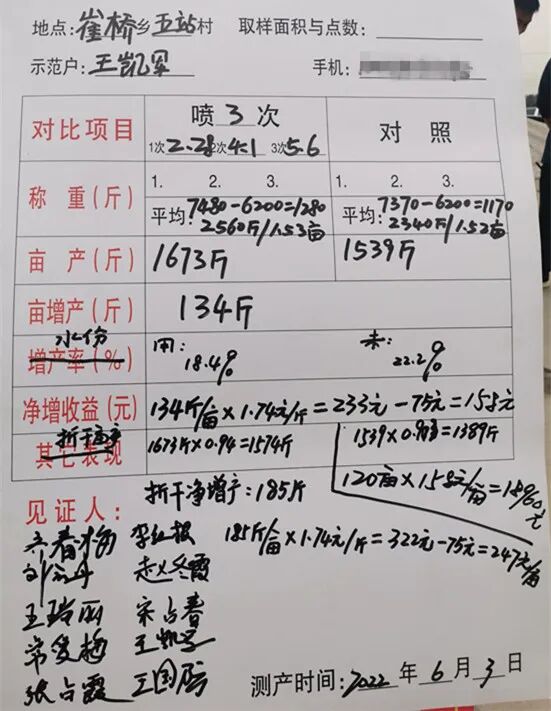 地点：崔桥乡五站村 取样面积与点数：
示范户：王凯军 手机：
对比项目 喷3次 对照
1次2.28 2次4.1 3次5.6
称重(斤) 1. 2. 3. 1. 2. 3.
平均：7480-6200=1280 平均：7370-6200=1170
2560斤/1.53亩 2340斤/1.52亩
亩产(斤) 1673斤 1539斤
亩增产(斤) 134斤
水份
增产率(%) 用：18.4% 未：22.2%
净增收益(元) 134斤/亩×1.74元/斤=233元-75元=158元
折干亩产
其它表现 1673斤×0.94=1574斤 1539×0.9 =1389斤
折干净增产：185斤 120亩×158元/亩=18960元
见证人：
185斤/亩×1.74元/斤=322元-75元=247元/亩
李红根
赵冬霞
王玲丽 宋占春
常爱梅 王凯军
张占霞 王国防
测产时间：2022年6月3日